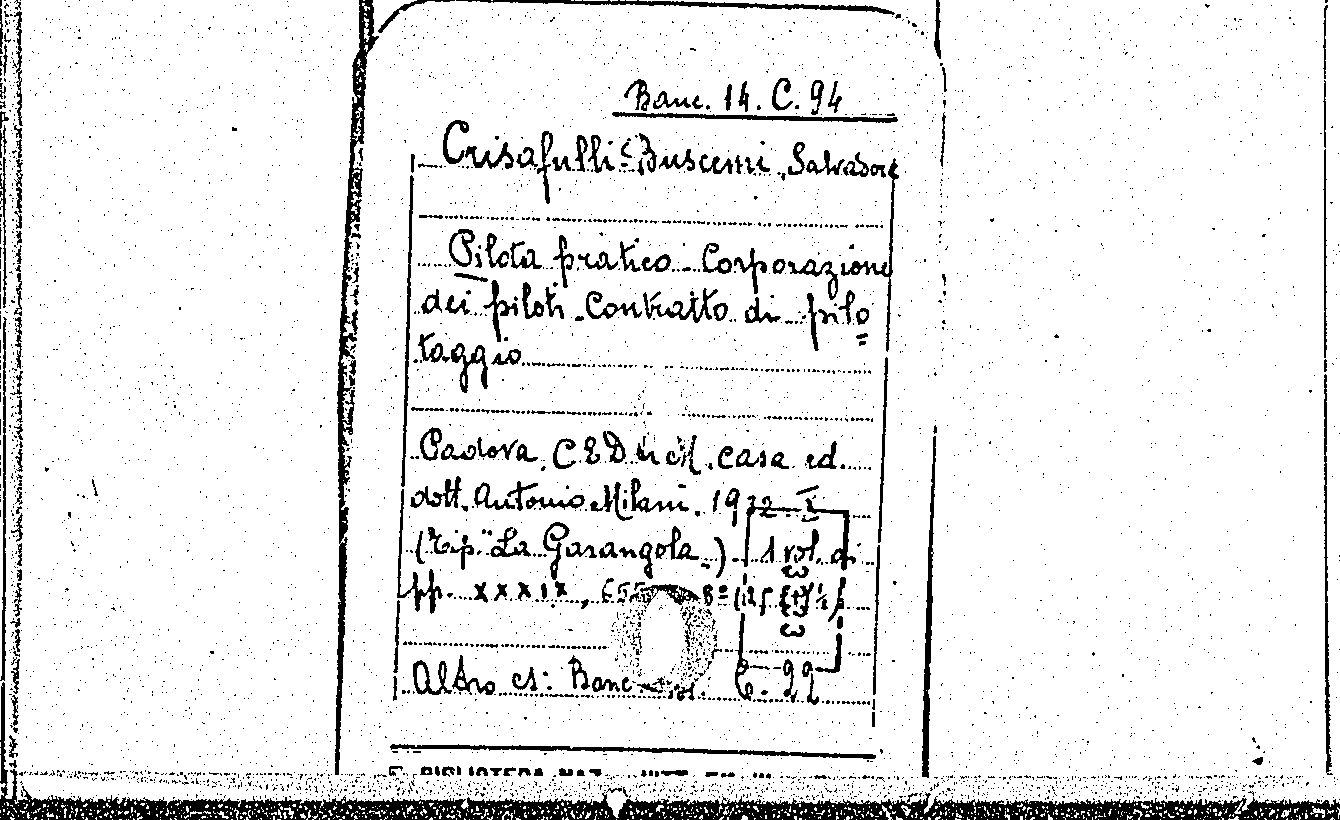 Banc. 14. C. 94
Crisafulli-Buscemi, Salvatore
Pilota pratico - Corporazione
dei piloti - Contratto di pilo
taggio
Padova, CEDAM, casa ed.
dott. Antonio Milani, 1932-X
(Tip. "La Garangola.) 1 vol. di
pp. XXXIX, 655 8º
Altro es: Banc C. 22
BIBLIOTECA NAZ. VITT. EM. III